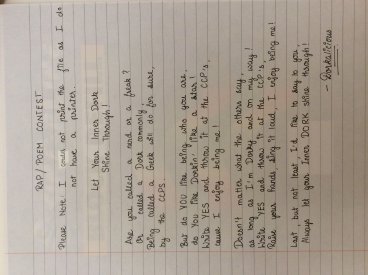 RAP/POEM CONTEST
Please Note I could not print the file as I do
not have a printer.
Let Your Inner Dork
Shine Through!
Are you called a nerd or a freak?
Or called a Dork commonly,
Being called a Geek will do for sure,
by the CCPS.
But do YOU like being who you are,
do YOU like Dorkin' like a star!
Write YES and throw it at the CCP's,
cause I enjoy being me!
Doesn't matter what the others say,
as long as I'm Dorky and on my way!
Write YES and throw it at the CCP's,
Raise your hands, sing it loud, I enjoy being me!
Last, but not least, I'd like to say to you,
Always let your Inner DORK shine through!
- Dorkalicious